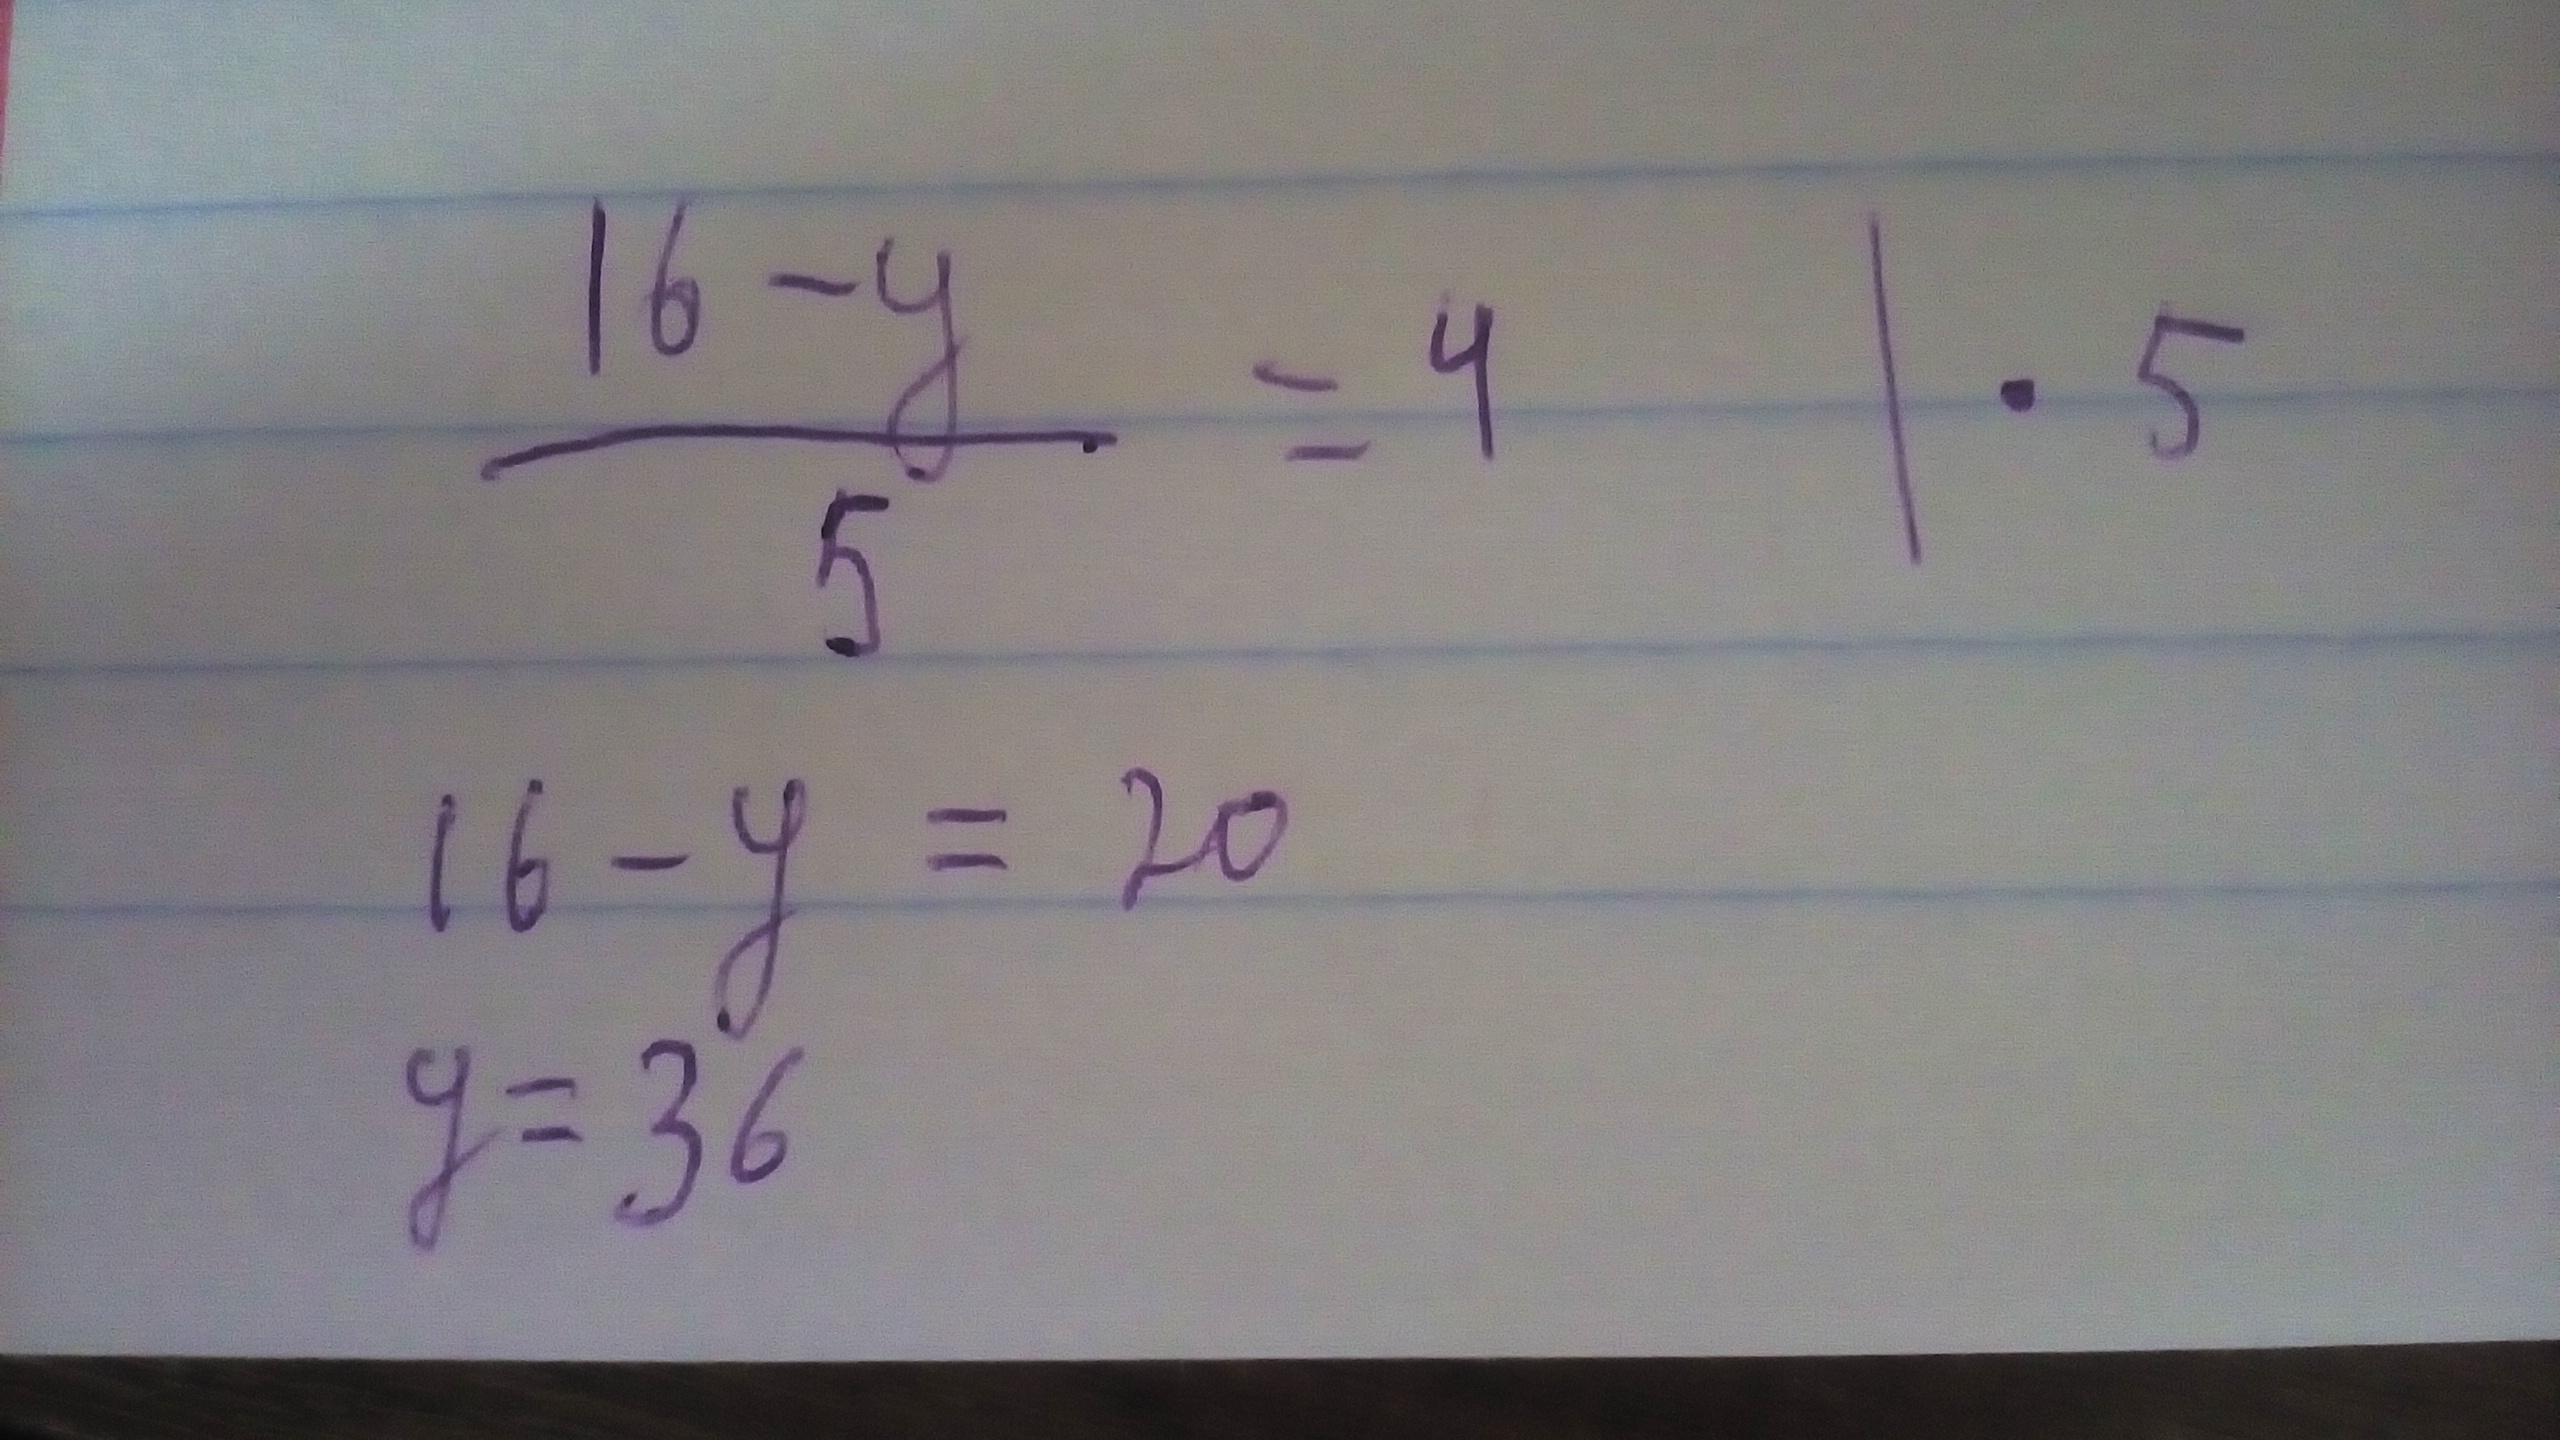 16 - y / 5 = 4 | · 5
16 - y = 20
y = 36